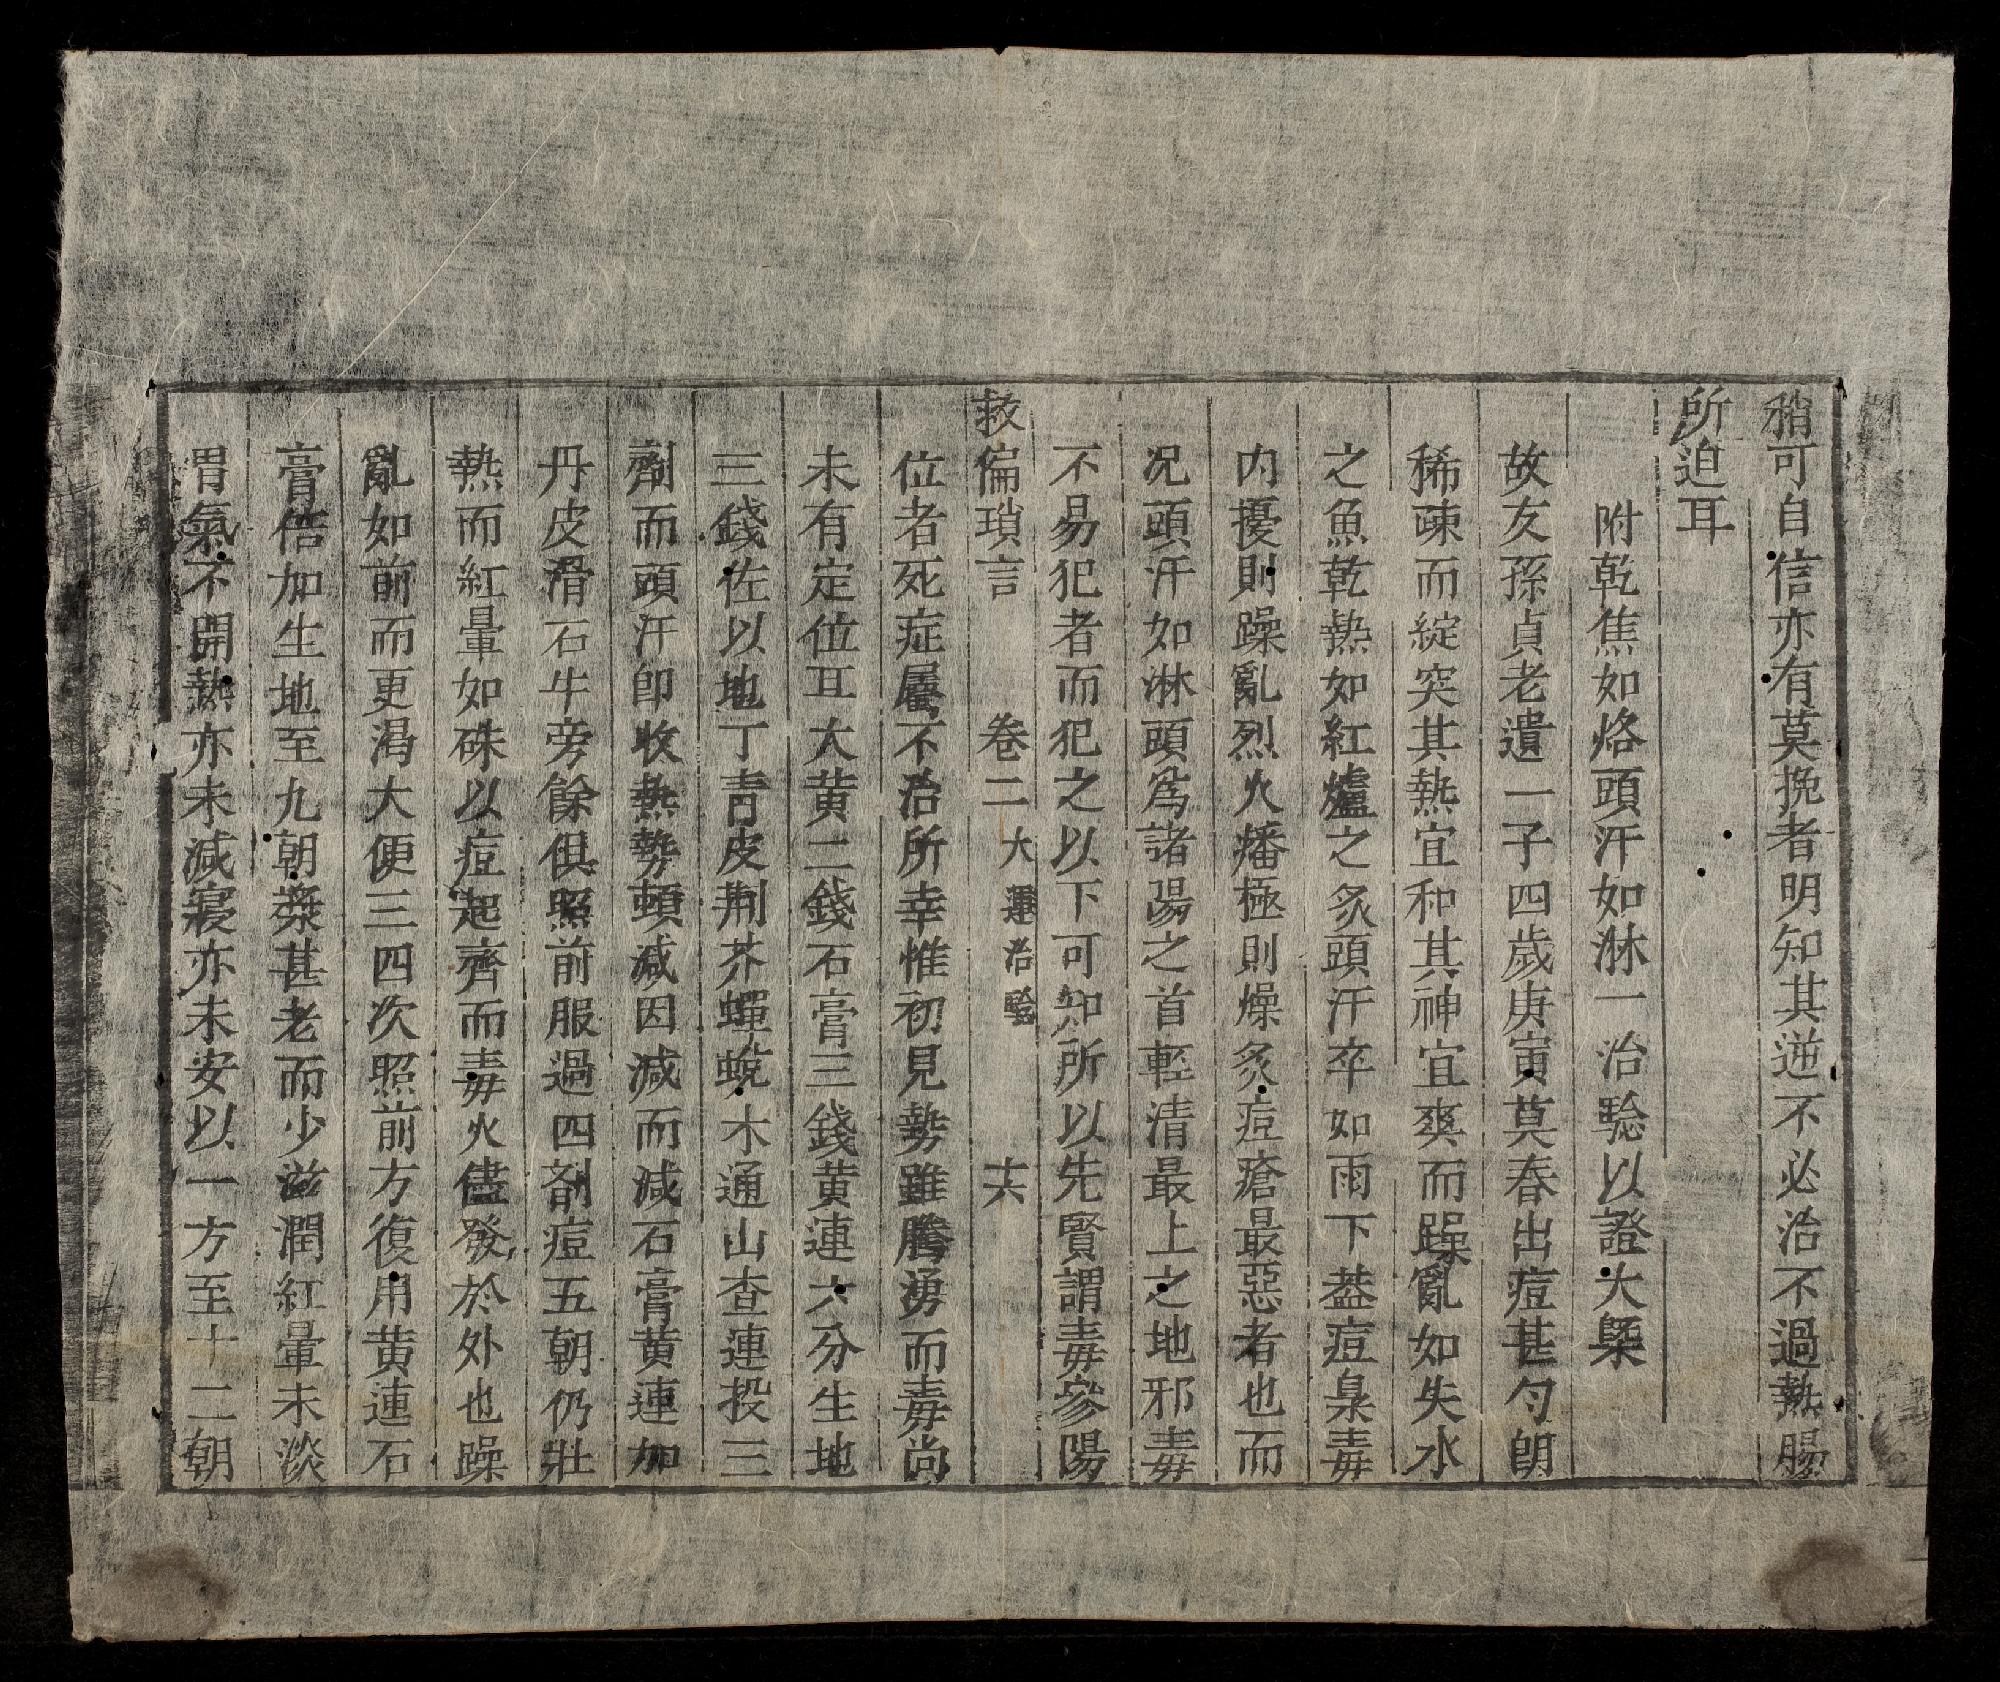 稍可自信亦有莫挽者明知其逆不必治不過熱腸
所迫耳
附乾焦如烙頭汗如淋一治驗以證大槩
故友孫貞老遺一子四歲庚寅莫春出痘甚勻朗
稀疎而綻突其熱宜和其神宜爽而躁亂如失水
之魚乾熱如紅爐之炙頭汗卒如雨下葢痘梟毒
内擾則躁亂烈火燔極則燥炙痘瘡最惡者也而
况頭汗如淋頭爲諸陽之首輕清最上之地邪毒
不易犯者而犯之以下可知所以先賢謂毒參陽
救偏瑣言 卷二 大運治驗 十六
位者死症屬不治所幸惟初見勢雖騰湧而毒尚
未有定位耳大黄二錢石膏三錢黄連六分生地
三錢佐以地丁靑皮荆芥蟬蜕木通山查連投三
劑而頭汗卽收熱勢頓减因减而减石膏黄連加
丹皮滑石牛旁餘俱照前服過四劑痘五朝仍壯
熱而紅暈如硃以痘起齊而毒火儘發於外也躁
亂如前而更渴大便三四次照前方復用黄連石
膏倍加生地至九朝漿甚老而少滋潤紅暈未淡
胃氣不開熱亦未减寢亦未安以一方至十二朝